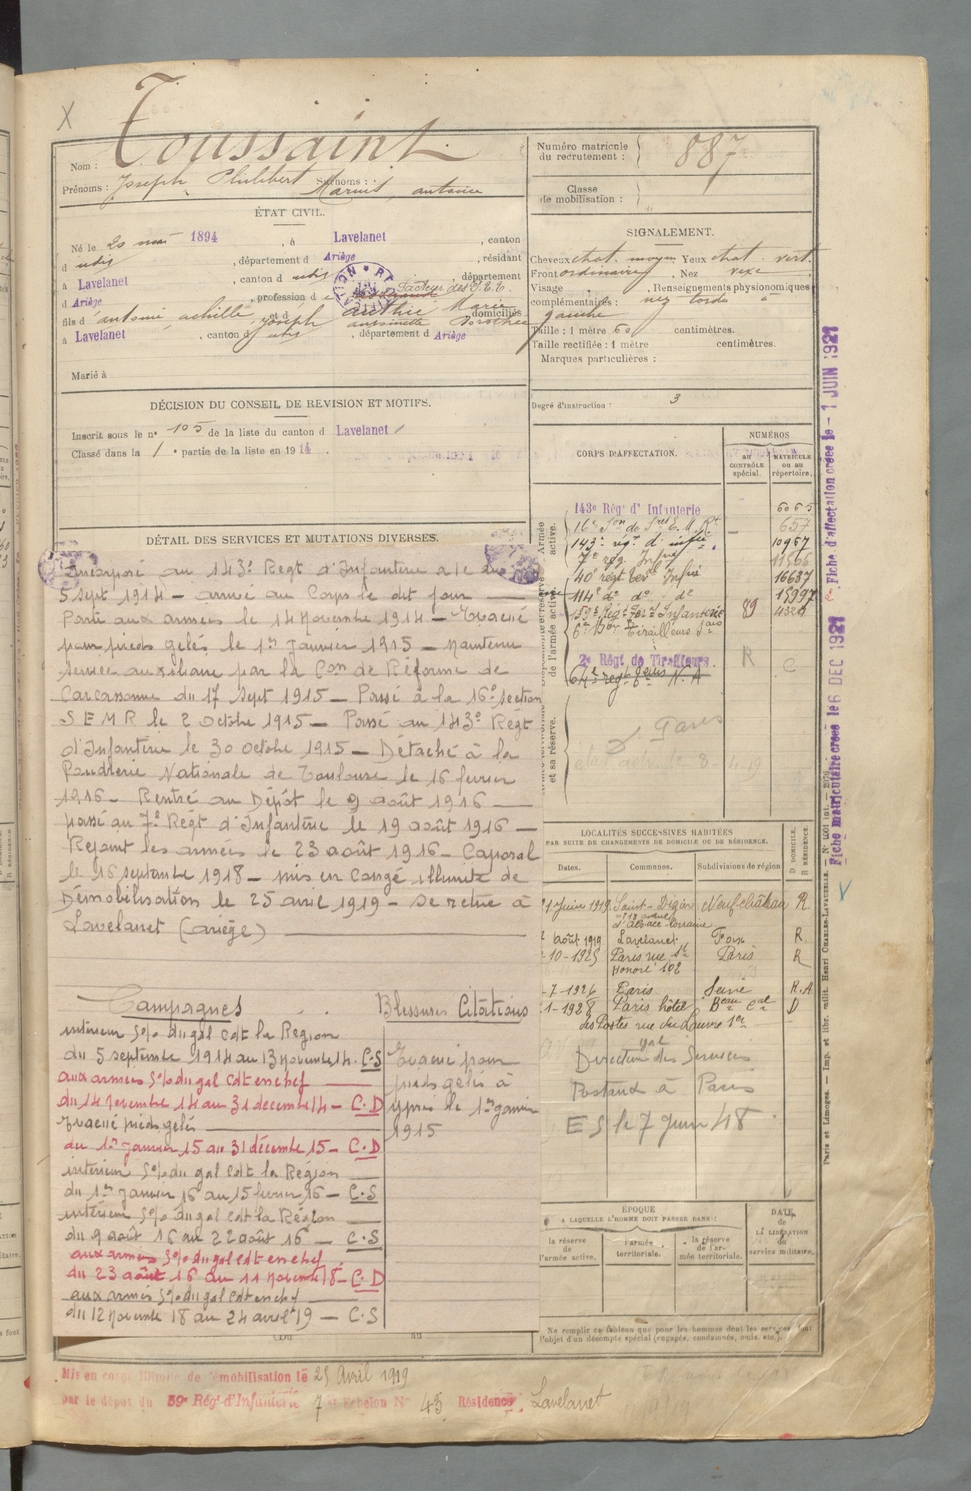 X
Nom : Toussaint
Prénoms : Joseph Philibert Surnoms : Marius, antoine
Numéro matricule
du recrutement : 887
Classe
de mobilisation :
ÉTAT CIVIL.
Né le 20 mai 1894, à Lavelanet, canton
d udis, département d Ariège, résidant
à Lavelanet, canton d udis, département
d Ariège, profession d facteur des P.T.T.
fils d'antoine, achille, joseph et d authié Marie antoinette Dorothée domiciliés
à Lavelanet, canton d udis, département d Ariège
Marié à
SIGNALEMENT.
Cheveux chat. moyen Yeux chat. vert
Front ordinaire, Nez vexe
Visage , Renseignements physionomiques
complémentaires : nez tordu à
gauche
Taille : 1 mètre 60 centimètres.
Taille rectifiée : 1 mètre centimètres.
Marques particulières :
Degré d'instruction : 3
DÉCISION DU CONSEIL DE REVISION ET MOTIFS.
Inscrit sous le n° 105 de la liste du canton d Lavelanet
Classé dans la 1e partie de la liste en 1914.
DÉTAIL DES SERVICES ET MUTATIONS DIVERSES.
Incorporé au 143e Regt d'Infanterie à/c du
5 sept 1914 - arrivé au Corps le dit jour
Parti aux armées le 14 Novembre 1914 - Evacué
pour pieds gelés le 1er Janvier 1915 - Maintenu
service auxiliaire par la Con de Réforme de
Carcassonne du 17 Sept 1915 - Passé à la 16e section
S E M R le 2 Octobre 1915 - Passé au 143e Régt
d'Infanterie le 30 Octobre 1915 - Détaché à la
Poudrerie Nationale de Toulouse le 16 fevrier
1916 - Rentré au Dépôt le 9 août 1916
passé au 7e Régt d'Infanterie le 19 août 1916 -
Rejoint les armées le 23 août 1916 - Caporal
le 16 septembre 1918 - mis en Congé illimité de
Démobilisation le 25 avril 1919 - Se retire à
Lavelanet (ariège)
Campagnes
intérieur S/s du gal cdt la Région
du 5 septembre 1914 au 13 Novembre 14. C.S
aux armées S/s du gal Cdt en chef
du 14 Novembre 14 au 31 decembre 14 - C.D
Evacué pieds gelés
du 1er Janvier 15 au 31 décembre 15 - C.D
intérieur S/s du gal cdt la Région
du 1er Janvier 16 au 15 fevrier 16 - C.S
intérieur S/s du gal Cdt la Région
du 9 août 16 au 22 août 16 - C.S
aux armées S/s du gal Cdt en chef
du 23 août 16 au 11 Novembre 18 - C.D
aux armées S/s du gal Cdt en chef
du 12 Novembre 18 au 24 avril 19 - C.S
Blessures Citations
Evacué pour
pieds gelés à
Ypres le 1er janvier
1915
CORPS D'AFFECTATION.
NUMÉROS
AU CONTRÔLE spécial.
MATRICULE ou au répertoire.
Armée active.
143e Rég' d' Infanterie 6065
16e Son de Sres E. M. Rt 657
143e regt d'infie 10967
7e rgt Infie 11566
40e regt terr Infie 16687
114e do do do 15997
153e Régt Infanterie 89 4324
6e Bon Tirailleurs
2e Régt de Tirailleurs. R C
et sa réserve.
Paris
LOCALITÉS SUCCESSIVES HABITÉES
PAR SUITE DE CHANGEMENTS DE DOMICILE OU DE RÉSIDENCE.
Dates. Communes. Subdivisions de région D DOMICILE. R RÉSIDENCE.
Juin 1919 Saint-Dizier Neufchâteau R
avenue d'alsace-Lorraine
août 1919 Lavelanet Foix R.
-10-1925 Paris rue St Honoré 102 Paris R
-7-1926 Paris Seine R.A
1-1928 Paris hôtel Beau Cal D
des Postes rue du Louvre 1er
Direction gale des Services
Postaux à Paris
E S le 7 Juin 48
ÉPOQUE
A LAQUELLE L'HOMME DOIT PASSER DANS :
la réserve de l'armée active.
l'armée territoriale.
la réserve de l'armée territoriale.
DATE de LA LIBÉRATION du service militaire.
Ne remplir ce tableau que pour les hommes dont les services font
l'objet d'un décompte spécial (engagés, condamnés, omis, etc.).
Du au
Mis en congé illimité de démobilisation le 25 Avril 1919
par le dépôt du 59e Rég' d'Infanterie 7e Echelon N° 43 Résidence : Lavelanet
Fiche matriculaire créée le 6 DEC 1921
Fiche d'affectation créée le - 1 JUIN 1921
Paris et Limoges. — Imp. et libr. milit. Henri CHARLES-LAVAUZELLE.